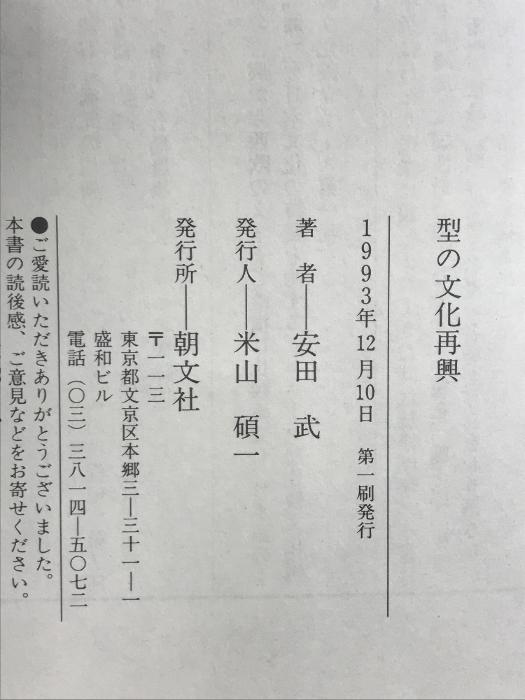 型の文化再興
1993年12月10日 第一刷発行
著 者―安田 武
発行人―米山 碩一
発行所―朝文社
〒一一三
東京都文京区本郷三―三十一―一
盛和ビル
電話（〇三）三八一四―五〇七二
●ご愛読いただきありがとうございました。
本書の読後感、ご意見などをお寄せください。